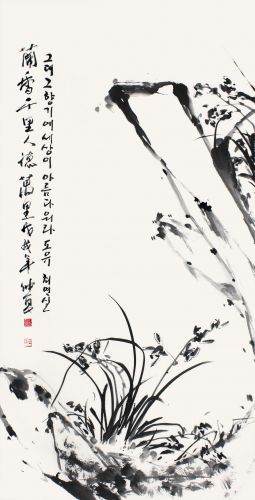 그대 그 향기에 세상이 아름다워라 도유
蘭香千里人德萬里 戊戌年 仲夏